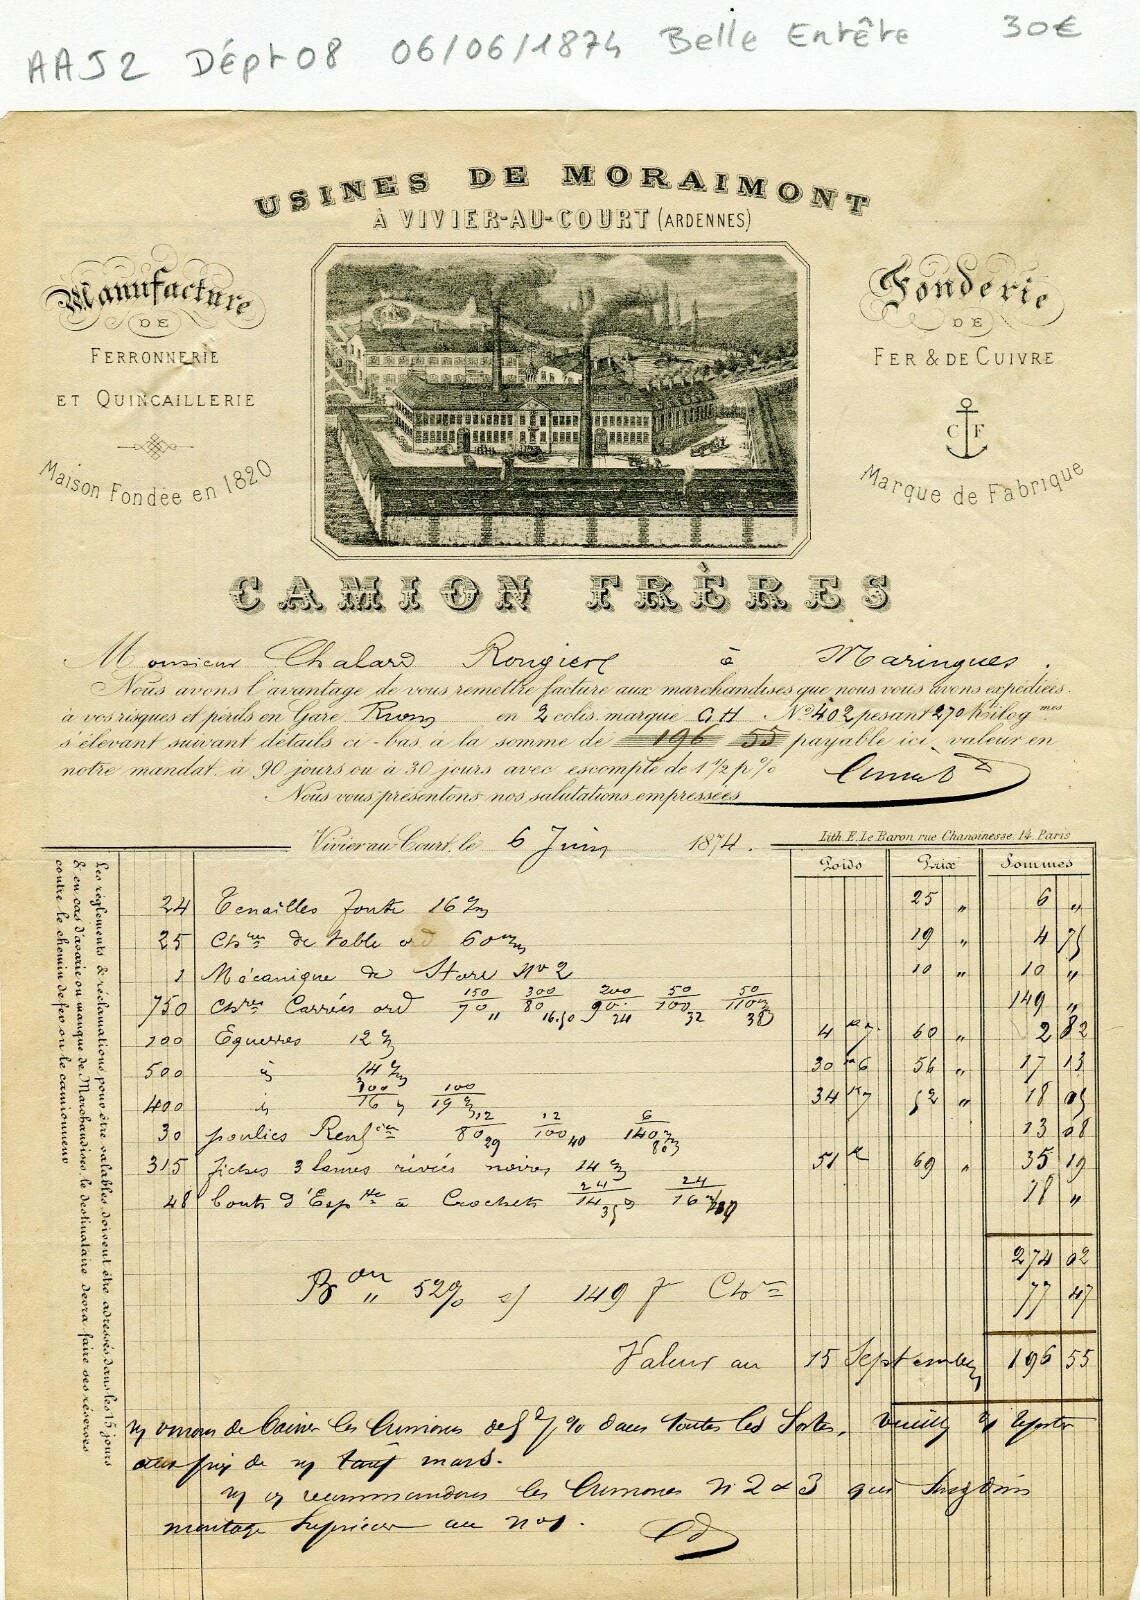 AAJ2 Dépt 08 06/06/1874 Belle Entête 30€
USINES DE MORAIMONT
À VIVIER-AU-COURT (ARDENNES)
Manufacture
DE
FERRONNERIE
ET QUINCAILLERIE
Maison Fondée en 1820
Fonderie
DE
FER & DE CUIVRE
C F
Marque de Fabrique
CAMION FRÈRES
Monsieur Chalard Rougier à Maringues.
Nous avons l'avantage de vous remettre facture aux marchandises que nous vous avons expédiées
à vos risques et périls en Gare en 2 colis marque GH No 402 pesant 270 kilog mes
s'élevant suivant détails ci-bas à la somme de 196 55 payable ici, valeur en
notre mandat à 90 jours ou à 30 jours avec escompte de 1 1/2 p %
Nous vous présentons nos salutations empressées
Vivier au Court, le 6 Juin 1874.
Lith. E. Le Baron rue Chanoinesse 14. Paris
Poids Prix Sommes
Les règlements & réclamations pour être valables doivent être adressés dans les 15 jours
& en cas d'avarie ou manque de Marchandise, le destinataire devra faire ses réserves
contre le chemin de fer ou le camionneur
24 Tenailles fonte 16 25 " 6 "
25 Chres de table ord 60 19 " 4 75
1 Mécanique de Store No 2 10 " 10 "
750 Chres Carrées ord 150/70 11 300/80 16.50 200/90 24 50/100 32 50/110 38 149 "
100 Equerres 12 4 K 7 60 " 2 82
500 id 14 30 K 6 56 " 17 13
400 id 300/16 100/19 34 K 7 52 " 18 05
30 poulies Renf 12/80 29 12/100 40 6/140 80 13 08
315 fiches 3 lames rivées noires 14 51 K 69 " 35 19
48 bouts d'Esp à Crochets 24/14 35 24/16 18 "
274 02
52% s/ 149 f Chres 77 47
Valeur au 15 Septembre 196 55
de baisser les Cremones de 5 % dans toutes les Sortes, veuillez
prix de tarif mars.
recommandons les Cremones N 2 & 3 qui
montage Supérieur au No 1.